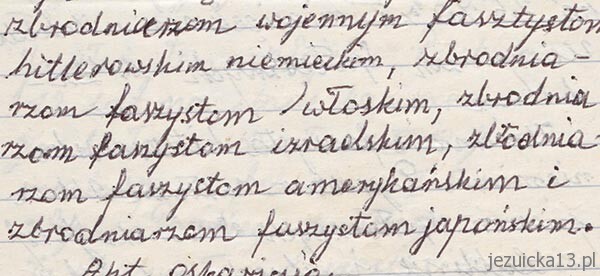 zbrodniarzom wojennym fasztystom
hitlerowskim niemieckim, zbrodnia-
rzom faszystom /włoskim, zbrodnia
rzom faszystom izraelskim, zbłodnia-
rzom faszystom amerykańskim i
zbrodniarzom faszystom japońskim.
jezuicka13.pl
Akt oskarżenia